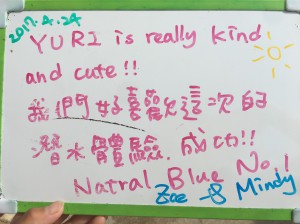 2017.4.24
YURI is really kind
and cute!!
我們好喜歡這次的
潛水體驗. 成功!!
Natral Blue No.1
Zoe Mindy